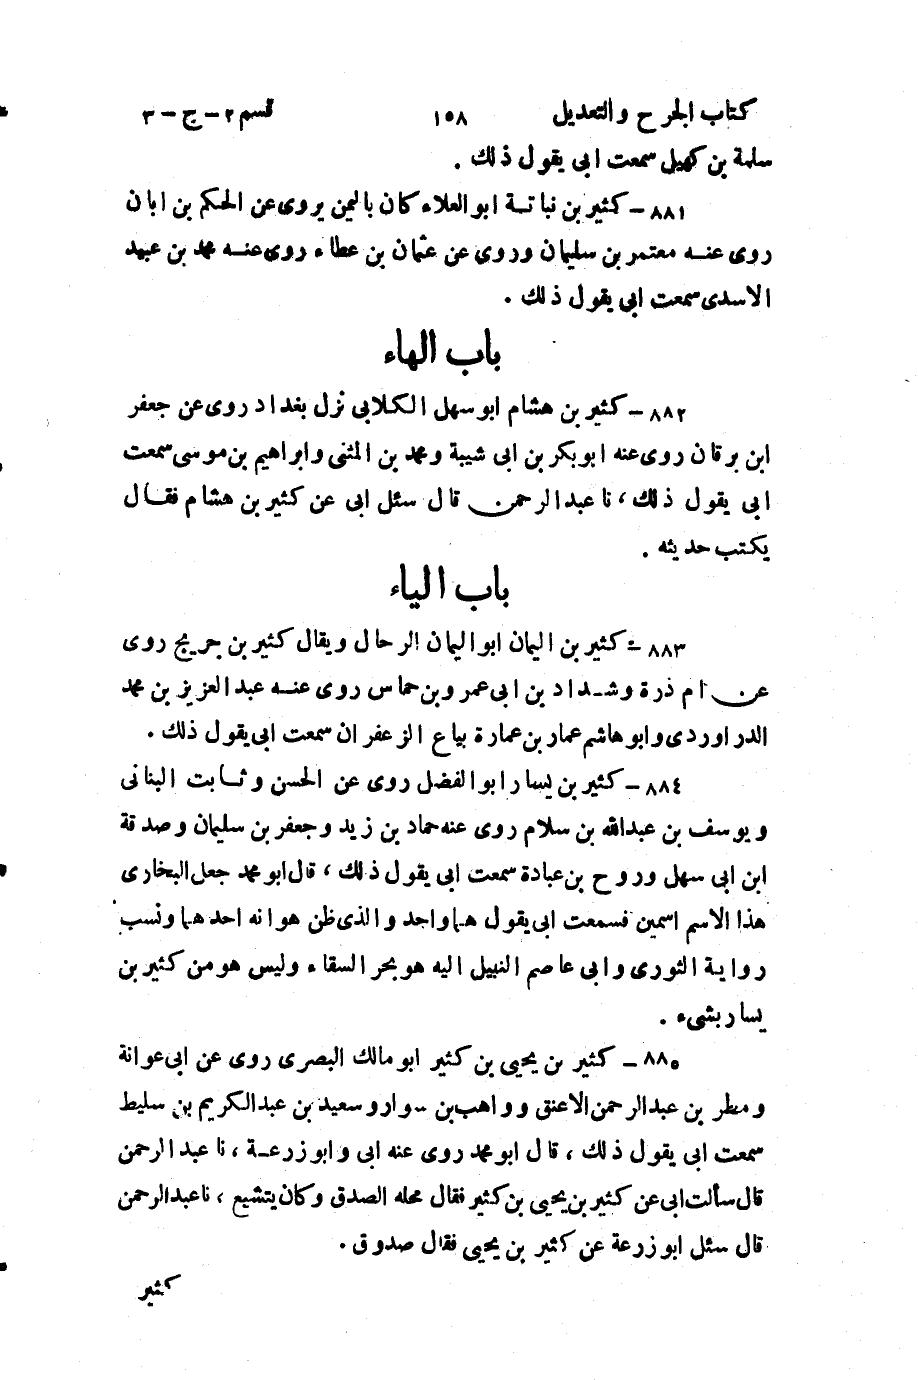 كتاب الجرح والتعديل ١٥٨ قسم ٢ – ج – ٣
سلمة بن كهيل سمعت ابى يقول ذلك .
٨٨١ – كثير بن نباتة ابو العلاء كان باليمن يروى عن الحكم بن ابان
روى عنه معتمر بن سليمان وروى عن عثمان بن عطاء روى عنه محمد بن عبيد
الاسدى سمعت ابى يقول ذلك .
باب الهاء
٨٨٢ – كثير بن هشام ابو سهل الكلابى نزل بغداد روى عن جعفر
ابن برقان روى عنه ابو بكر بن ابى شيبة ومحمد بن المثنى وابراهيم بن موسى سمعت
ابى يقول ذلك ، نا عبد الرحمن قال سئل ابى عن كثير بن هشام فقال
يكتب حديثه .
باب الياء
٨٨٣ – كثير بن اليمان ابو اليمان الرحال ويقال كثير بن جريج روى
عن ام ذرة وشداد بن ابى عمرو بن حماس روى عنه عبد العزيز بن محمد
الدراوردى وابو هاشم عمار بن عمارة بياع الزعفران سمعت ابى يقول ذلك .
٨٨٤ – كثير بن يسار ابو الفضل روى عن الحسن وثابت البنانى
ويوسف بن عبدالله بن سلام روى عنه حماد بن زيد وجعفر بن سليمان وصدقة
ابن ابى سهل وروح بن عبادة سمعت ابى يقول ذلك ، قال ابو محمد جعل البخارى
هذا الاسم اسمين فسمعت ابى يقول هما واحد والذى ظن هو انه احدهما ونسب
رواية الثورى وابى عاصم النبيل اليه هو بحر السقاء وليس هو من كثير بن
يسار بشىء .
٨٨٥ – كثير بن يحيى بن كثير ابو مالك البصرى روى عن ابى عوانة
ومطر بن عبد الرحمن الاعنق وواهب بن سوار وسعيد بن عبد الكريم بن سليط
سمعت ابى يقول ذلك ، قال ابو محمد روى عنه ابى وابو زرعة ، نا عبد الرحمن
قال سألت ابى عن كثير بن يحيى بن كثير فقال محله الصدق وكان يتشيع ، نا عبد الرحمن
قال سئل ابو زرعة عن كثير بن يحيى فقال صدوق .
كثير